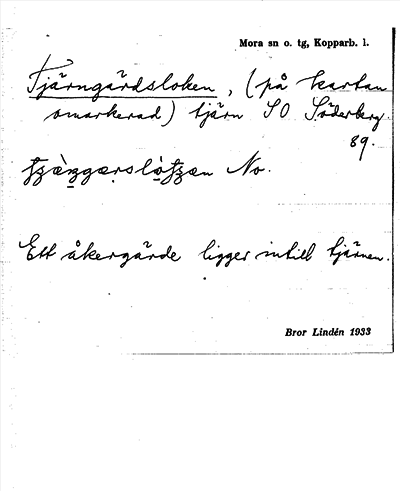 Mora sn o. tg, Kopparb. l.
Tjärngärdsloken, (på kartan
omarkerad) tjärn SO Söderberg.
89.
No.
Ett åkergärde ligger intill tjärnen.
Bror Lindén 1933